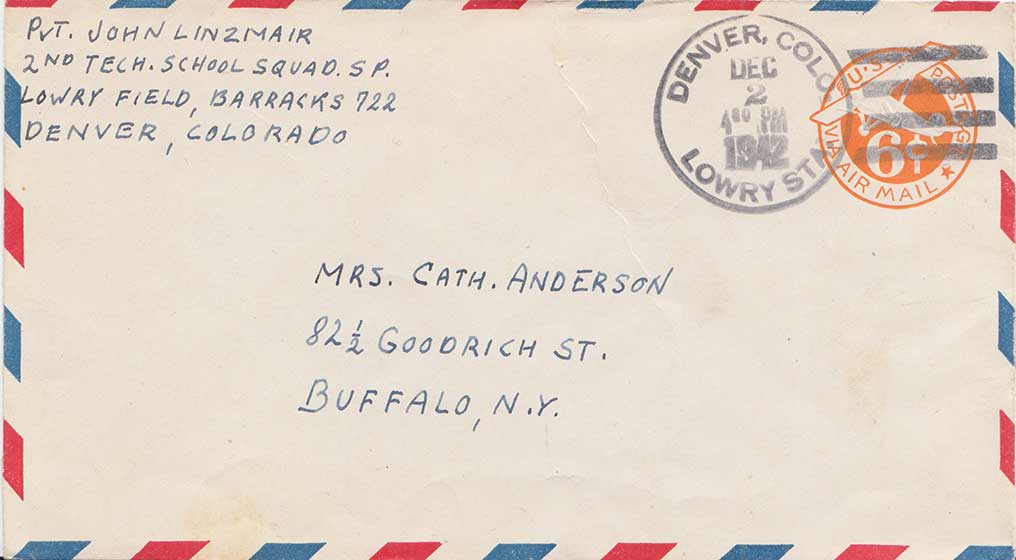 PVT. JOHN LINZMAIR
2ND TECH. SCHOOL SQUAD. S P.
LOWRY FIELD, BARRACKS 722
DENVER, COLORADO
DENVER, COLO.
DEC
2
PM
1942
LOWRY STA.
U.S. POSTAGE
6¢
VIA AIR MAIL
MRS. CATH. ANDERSON
82 1/2 GOODRICH ST.
BUFFALO, N.Y.